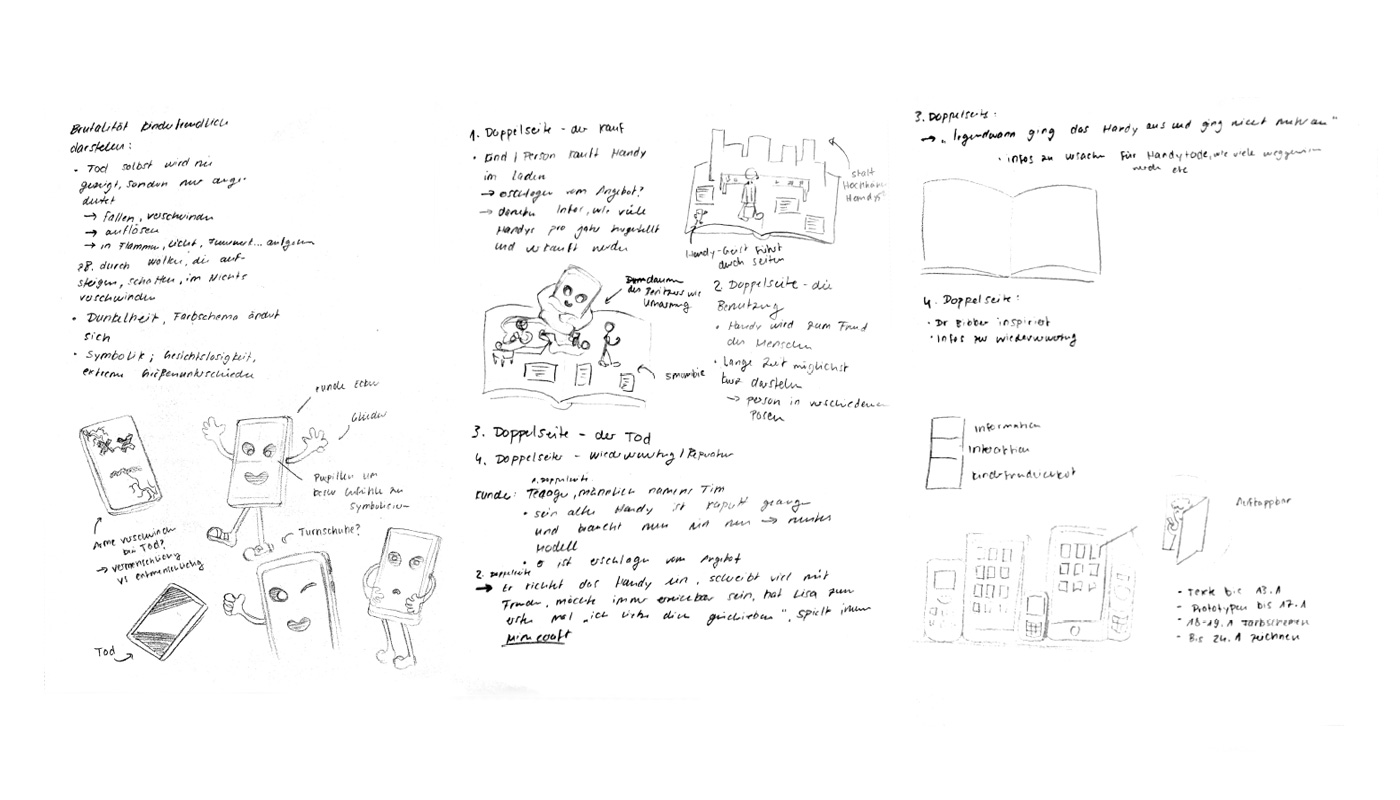 Brutalität kinderfreundlich
darstellen:
• Tod selbst wird nie
gezeigt, sondern nur ange-
deutet
→ fallen, verschwinden
→ auflösen
→ in Flammen, Licht, Feuerwerk... aufgehen
zB. durch Wolken, die auf-
steigen, Schatten, im Nichts
verschwinden
• Dunkelheit, Farbschema ändert
sich
• Symbolik; Gesichtslosigkeit,
extreme Größenunterschiede
runde Ecken
Glieder
Pupillen um
besser Gefühle zu
symbolisieren
Turnschuhe?
Arme verschwinden
bei Tod?
→ vermenschlichung
vs entmenschlichung
Tod
1. Doppelseite - der Kauf
• Kind / Person kauft Handy
im Laden
→ erschlagen vom Angebot?
→ daneben Infos, wie viele
Handys pro Jahr hergestellt
und verkauft werden
statt
Hochhäuser
Handys
Handy-Geist führt
durch Seiten
des Besitzers wie
Umarmung
Smombie
2. Doppelseite - die
Benutzung
• Handy wird zum Freund
des Menschen
• Lange Zeit möglichst
kurz darstellen
→ Person in verschiedenen
Posen
3. Doppelseite - der Tod
4. Doppelseite - Wiederverwertung / Reparatur
1. Doppelseite
Kunde: Teenager, männlich namens Tim
• sein altes Handy ist kaputt gegangen
und braucht nun ein neues → neustes
Modell
• er ist erschlagen vom Angebot
2. Doppelseite
→ Er richtet das Handy ein, schreibt viel mit
Freunden, möchte immer erreichbar sein, hat Lisa zum
ersten mal „ich liebe dich geschrieben", spielt immer
Minecraft
3. Doppelseite:
→ „Irgendwann ging das Handy aus und ging nicht mehr an"
• Infos zu Ursache für Handytode, wie viele weggeworfen
werden etc
4. Doppelseite:
• Dr Bibber inspiriert
• Infos zu Wiederverwertung
Information
Interaktion
Kinderfreundlichkeit
Aufklappbar
- Texte bis 13.1
- Prototypen bis 17.1
- 18-19.1 Farbschemen
- Bis 24.1 zeichnen